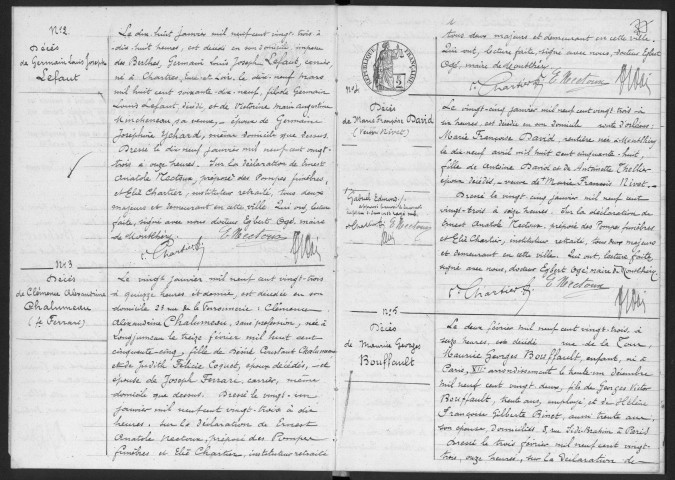 N°2
Décès
de Germain Louis Joseph
Lefaut
Le dix huit janvier mil neuf cent vingt-trois à
dix-huit heures, est décédé en son domicile, impasse
des Berthes, Germain Louis Joseph Lefaut, carrier,
né à Chartres, Eure et Loir, le dix-neuf mars
mil huit cent soixante-dix-neuf, fils de Germain
Louis Lefaut, décédé, et de Victorine Marie Augustine
sa veuve, – époux de Germaine
Joséphine Ychard, même domicile que dessus.
Dressé le dix neuf janvier mil neuf cent vingt-
trois à onze heures. Sur la déclaration de Ernest
Anatole Nectoux, préposé des Pompes funèbres,
et Elie Chartier, instituteur retraité, tous deux
majeurs et demeurant en cette ville. Qui ont, lecture
faite, signé avec nous docteur Egbert Ogé, maire
de Montlhéry.
E. Nectoux
Chartier
N°3
Décès
de Clémence Alexandrine
Chalumeau
(f. Ferrare)
Le vingt janvier mil neuf cent vingt-trois
à quinze heures et demie, est décédée en son
domicile 21 rue de la Poissonnerie : Clémence
Alexandrine Chalumeau, sans profession, née à
Longjumeau le treize février mil huit cent
cinquante-cinq, fille de Constant Chalumeau
et de Judith Félicie Coquet, époux décédés, – et
épouse de Joseph Ferrare, carrier, même
domicile que dessus. Dressé le vingt-un
janvier mil neuf cent vingt-trois à dix
heures. Sur la déclaration de Ernest
Anatole Nectoux, préposé des Pompes
funèbres et Elie Chartier, instituteur retraité
tous deux majeurs et demeurant en cette ville.
Qui ont, lecture faite, signé avec nous, docteur Egbert
Ogé, maire de Montlhéry.
Chartier E. Nectoux
RÉPUBLIQUE FRANÇAISE
N°4
Décès
de Marie Françoise David
(Veuve Nivet)
Le vingt-cinq janvier mil neuf cent vingt-trois à
heures, est décédée en son domicile route d'Orléans :
Marie Françoise David, rentière née à Montlhéry
le dix avril mil huit cent cinquante-huit,
fille de Antoine David et de Antoinette
époux décédés, – veuve de Marie François Nivet. –
Dressé le vingt cinq janvier mil neuf cent
vingt-trois à seize heures. Sur la déclaration de
Ernest Anatole Nectoux, préposé des Pompes funèbres,
et Elie Chartier, instituteur retraité, tous deux majeurs
et demeurant en cette ville. Qui ont, lecture faite,
signé avec nous, docteur Egbert Ogé, maire de Montlhéry.
Chartier E. Nectoux
N°5
Décès
de Maurice Georges
Bouffault
Le deux février mil neuf cent vingt-trois, à
seize heures, est décédé rue de la Tour,
Maurice Georges Bouffault, enfant, né à
Paris, arrondissement le trente un décembre
mil neuf cent vingt-deux, fils de Georges Victor
Bouffault, trente ans, employé et de Hélène
Françoise Gilberte Binet, aussi trente ans,
son épouse, domiciliés, 8 rue à Paris.
Dressé le trois février mil neuf cent vingt-
trois, onze heures, sur la déclaration de –